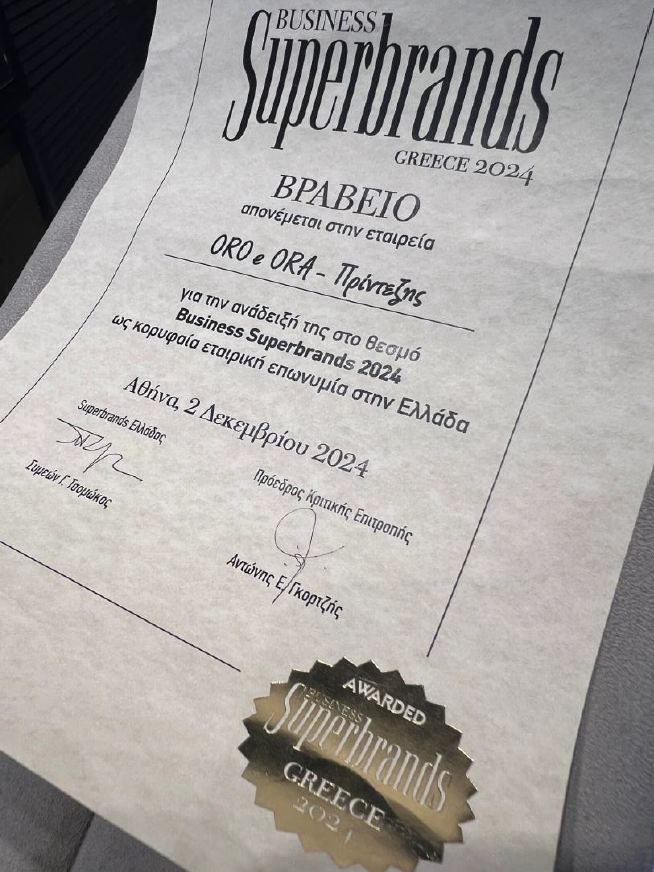 BUSINESS
Superbrands
GREECE 2024
ΒΡΑΒΕΙΟ
απονέμεται στην εταιρεία
ORO e ORA - Πρίντεζης
για την ανάδειξή της στο θεσμό
Business Superbrands 2024
ως κορυφαία εταιρική επωνυμία στην Ελλάδα
Αθήνα, 2 Δεκεμβρίου 2024
Superbrands Ελλάδας
Συμεών Γ. Τσομώκος
Πρόεδρος Κριτικής Επιτροπής
Αντώνης Ε. Γκορτζής
AWARDED
BUSINESS
Superbrands
GREECE
2024